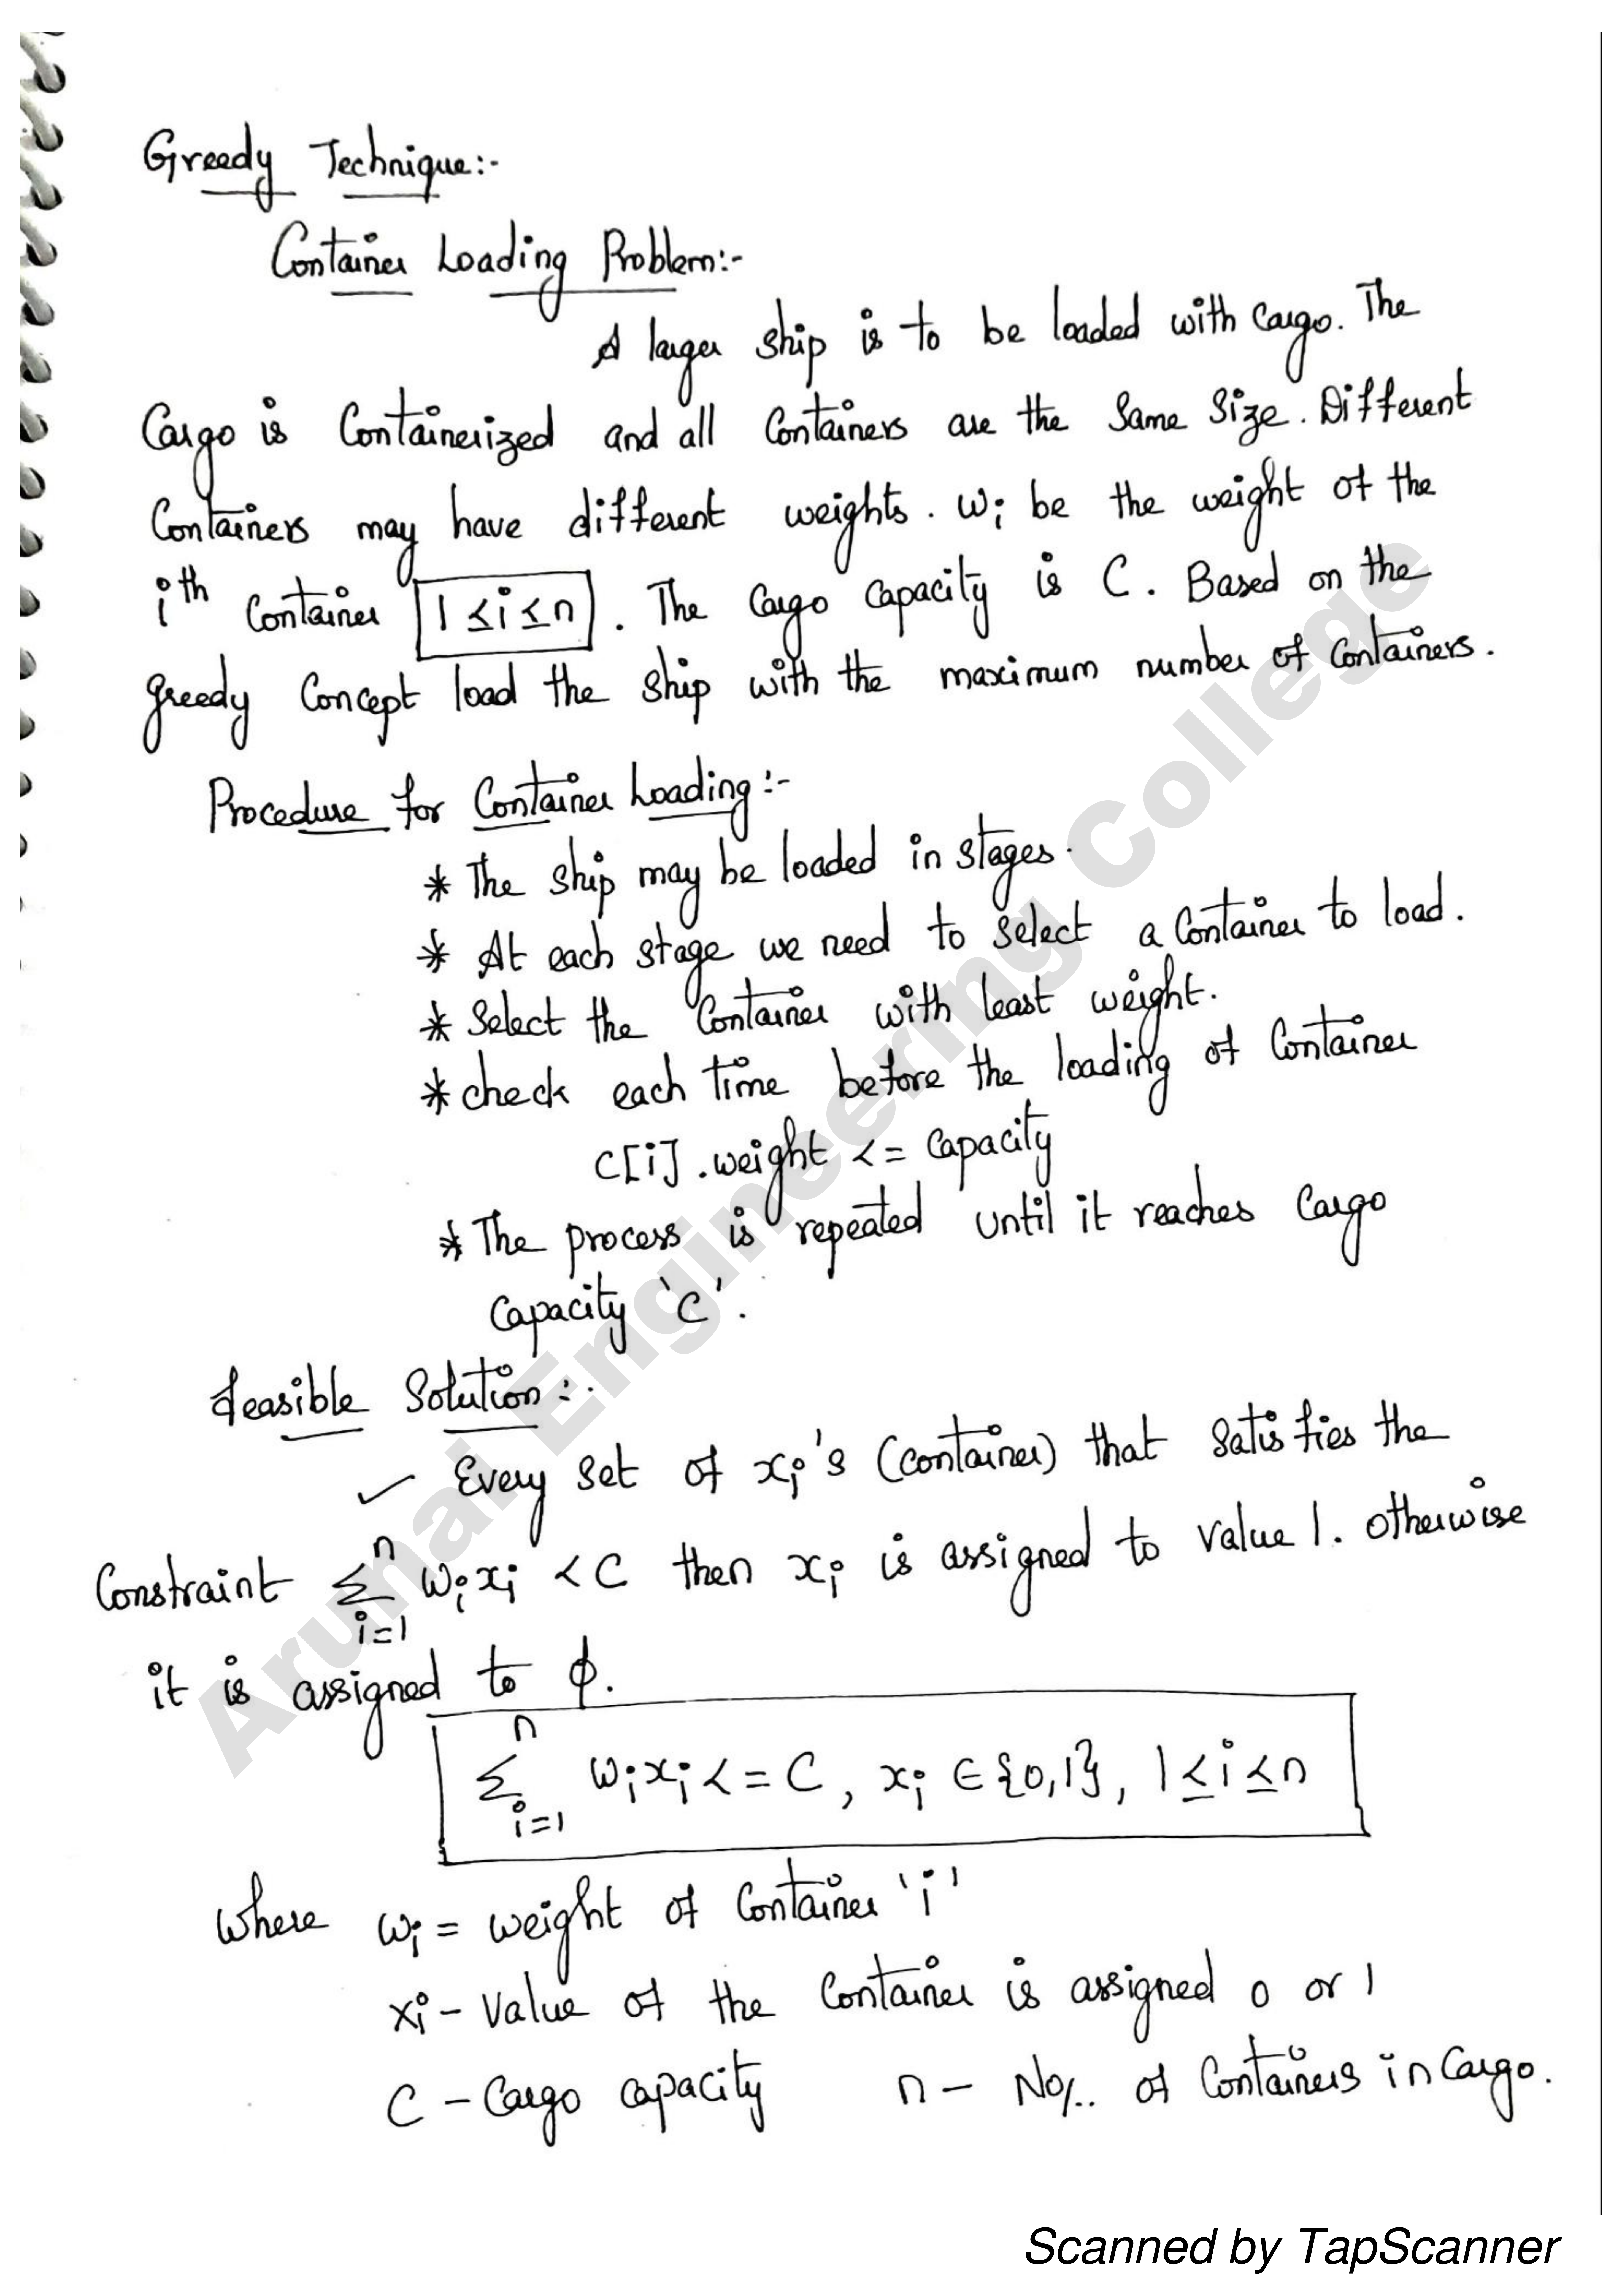 Greedy Technique:-
Container Loading Problem:-
A larger ship is to be loaded with Cargo. The
Cargo is Containerized and all Containers are the Same Size. Different
Containers may have different weights. wi be the weight of the
ith Container 1 ≤ i ≤ n. The Cargo Capacity is C. Based on the
greedy Concept load the ship with the maximum number of Containers.
Procedure for Container Loading:-
* The ship may be loaded in stages.
* At each stage we need to select a Container to load.
* Select the Container with least weight.
* check each time before the loading of Container
C[i].weight <= Capacity
* The process is repeated until it reaches Cargo
Capacity 'C'.
feasible Solution:-
✓ Every set of xi's (container) that satisfies the
Constraint n Σ i=1 wixi < C then xi is assigned to value 1. otherwise
it is assigned to ϕ.
n Σ i=1 wixi <= C, xi ∈ {0,1}, 1 ≤ i ≤ n
where wi = weight of Container 'i'
xi - Value of the Container is assigned 0 or 1
C - Cargo capacity n - No/.. of Containers in Cargo.
Arunai Engineering College
Scanned by TapScanner